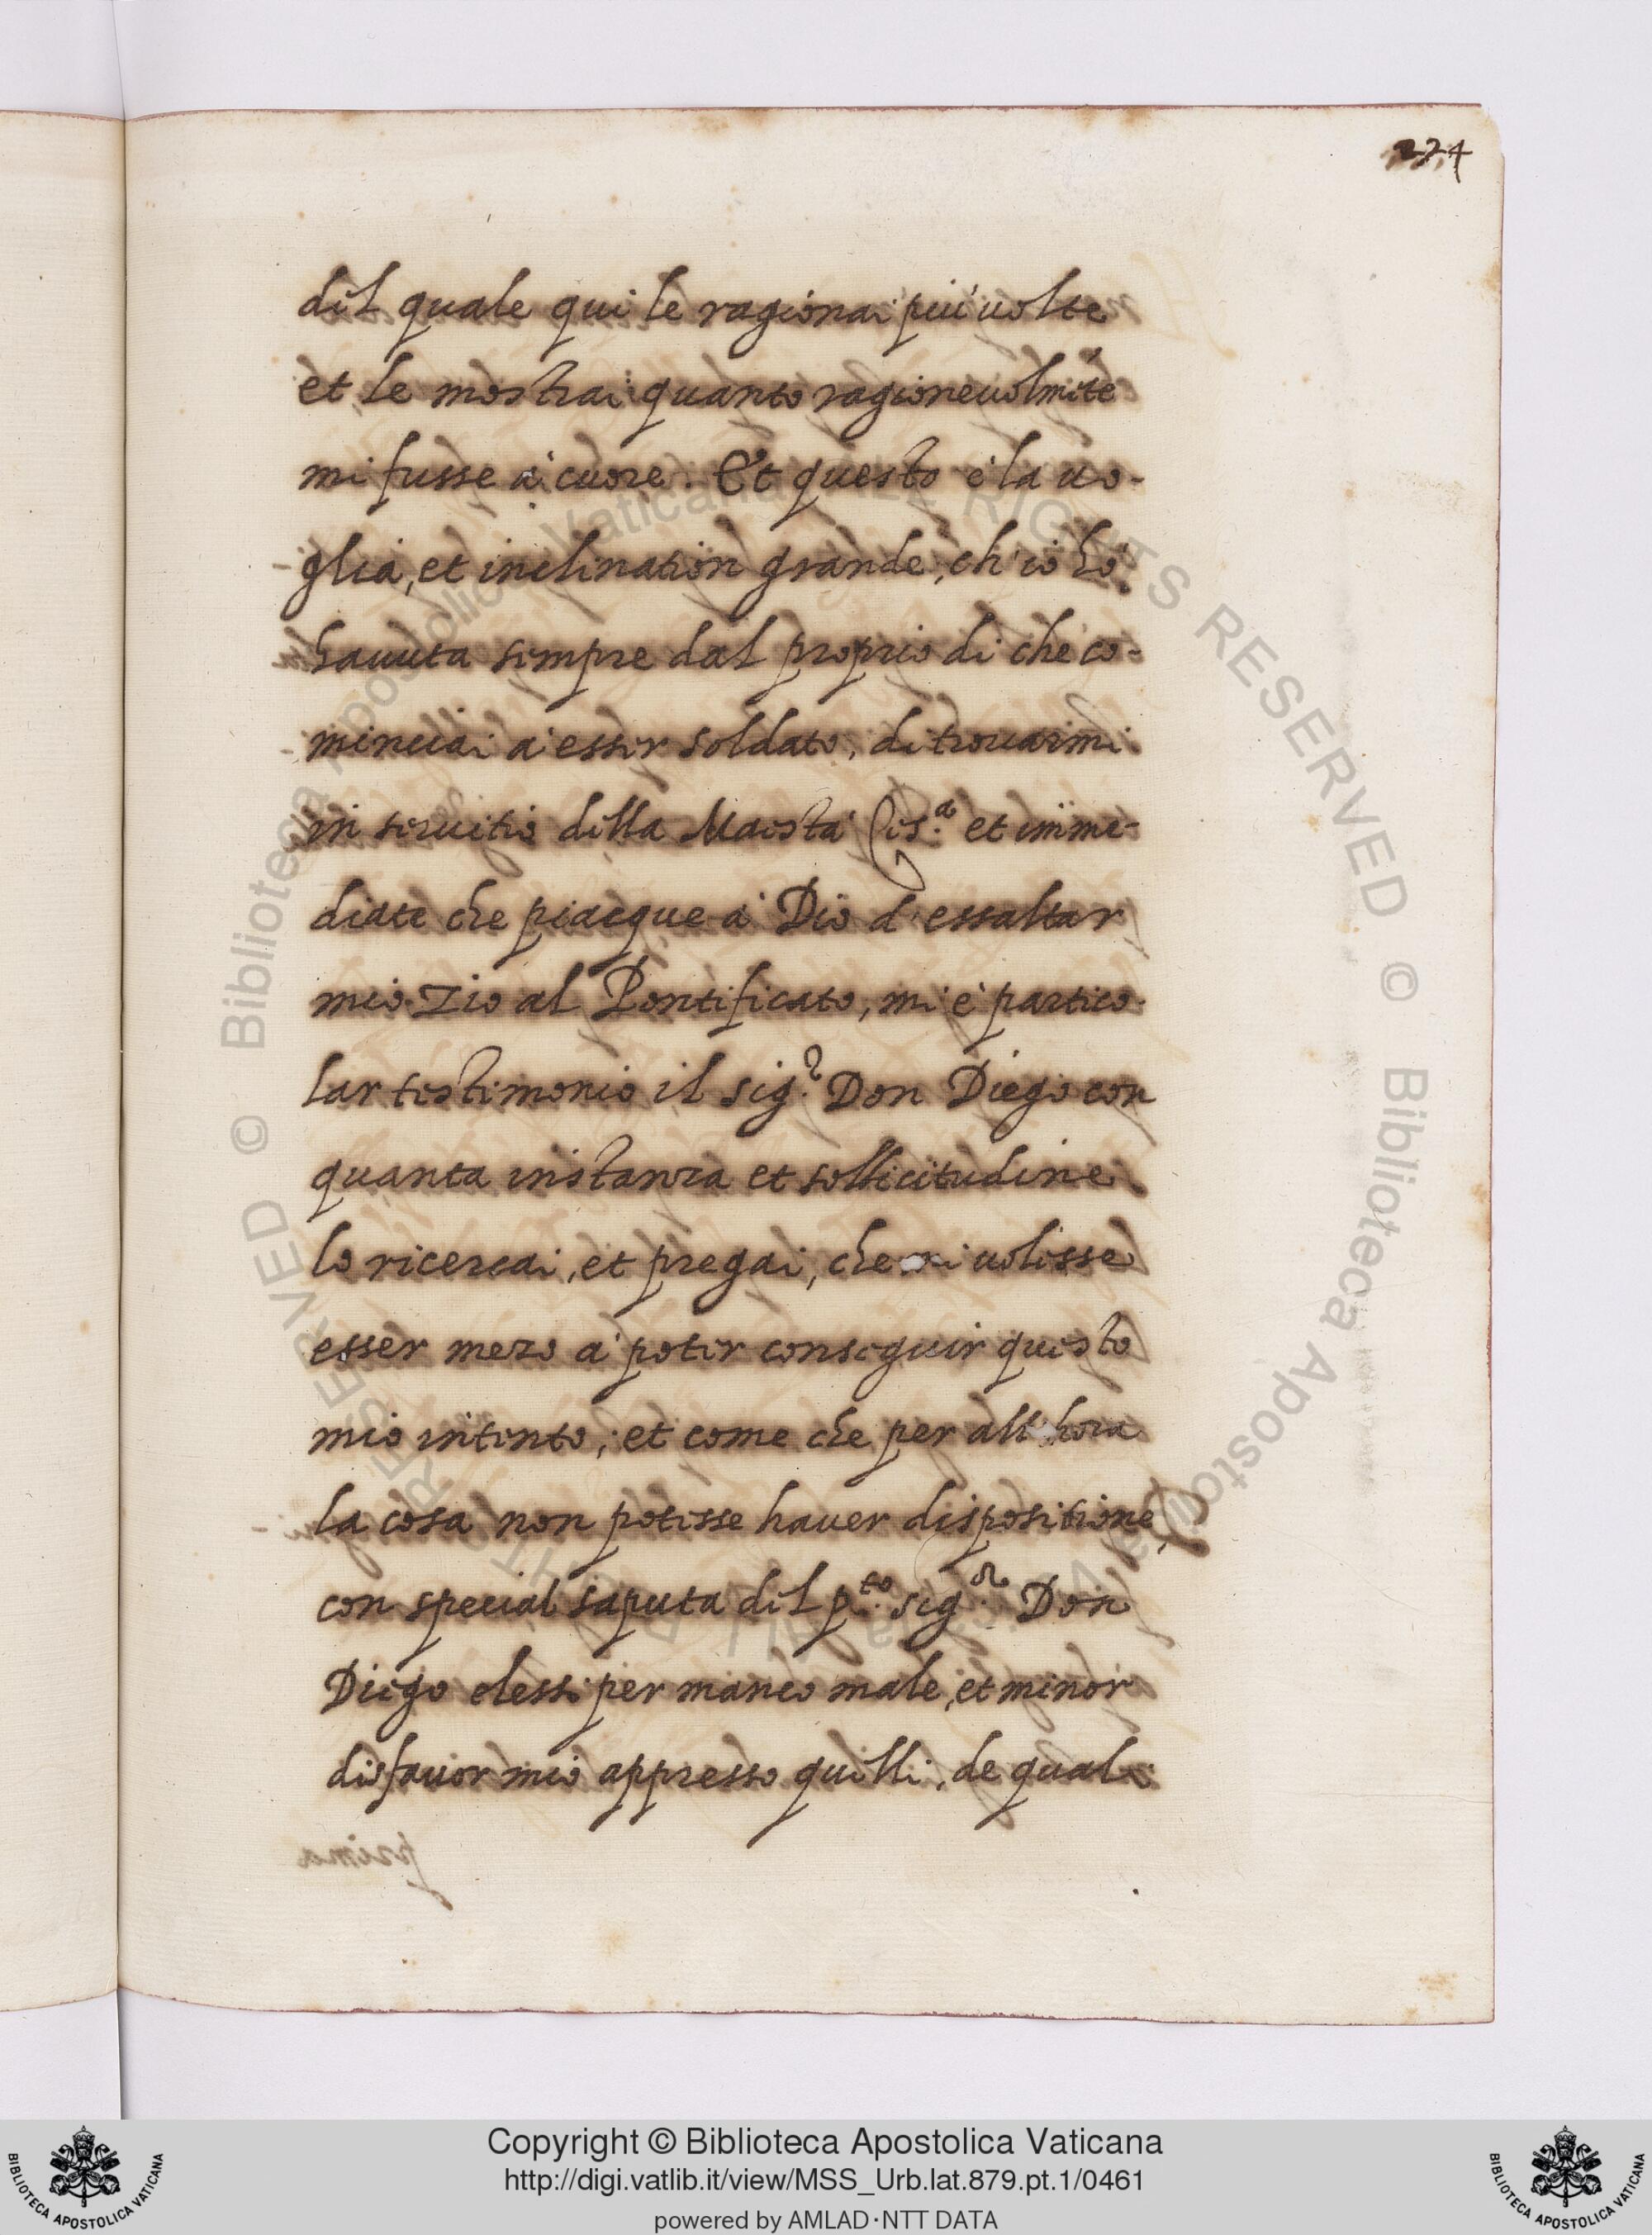 224
del quale qui le ragionai più uolte
et le mostrai quanto ragioneuolmẽte
mi fusse à cuore. Et questo è la uo-
glia, et inclination grande, ch'io hò
hauuta sempre dal proprio di che co-
minciai à esser soldato, di trouarmi
in seruitio della Maestà Ces.a et imme-
diate che piacque à Dio d'essaltar
mio Zio al Pontificato, mi è partico-
lar testimonio il sig.r Don Diego con
quanta instanza et sollicitudine
lo ricercai, et pregai, che mi uolesse
esser mezo à poter conseguir questo
mio intento, et come che per all'hora
la cosa non potesse hauer dispositione,
con special saputa del p.to sig.r Don
Diego elessi per manco male, et minor
disfauor mio appresso quelli, de quali
Copyright © Biblioteca Apostolica Vaticana
http://digi.vatlib.it/view/MSS_Urb.lat.879.pt.1/0461
powered by AMLAD·NTT DATA
BIBLIOTECA APOSTOLICA VATICANA
BIBLIOTECA APOSTOLICA VATICANA